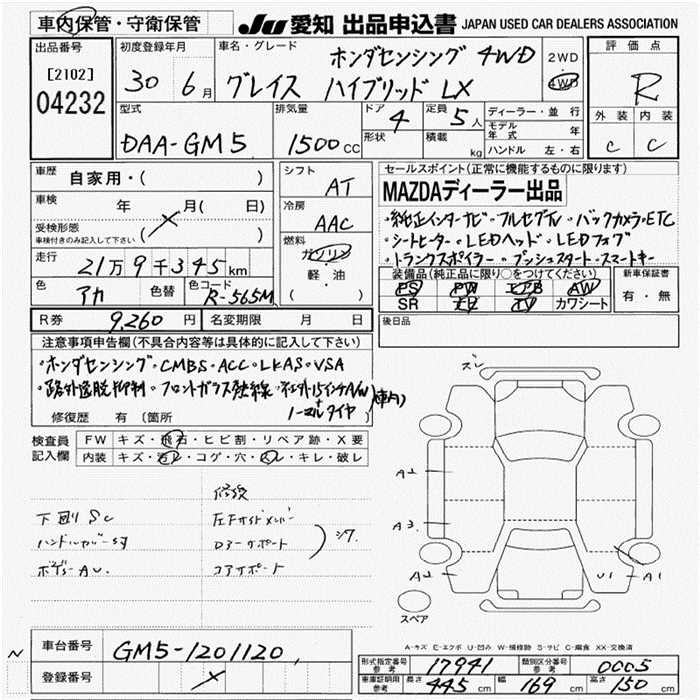 車内保管・守衛保管
JU 愛知 出品申込書 JAPAN USED CAR DEALERS ASSOCIATION
出品番号
[2102]
04232
初度登録年月
30 6月
車名・グレード
ホンダセンシング 4WD
グレイス ハイブリッド LX
2WD
4WD
評価点
R
外装 内装
C C
型式
DAA-GM5
排気量
1500CC
ドア
4
形状
定員
5人
積載
kg
ディーラー・並行
モデル年式 年
ハンドル 左・右
車歴
自家用・( )
車検
年 月( 日)
受検形態
車検付きのみ記入して下さい ( )
走行
21万9千345km
色
アカ
色替
色コード
R-565M
シフト
AT
冷房
AAC
燃料
ガソリン
軽・油
( )
セールスポイント(正常に機能するものに限ります)
MAZDAディーラー出品
・純正インターナビ・フルセグTV・バックカメラ・ETC
・シートヒーター・LEDヘッド・LEDフォグ
・トランクスポイラー・プッシュスタート・スマートキー
装備品(純正品に限り○をつけてください)
PS PW エアB AW
SR ナビ TV カワシート
新車保証書
有・無
R券 9,260円
名変期限 月 日
後日品
注意事項申告欄(不具合内容等は具体的に記入して下さい)
・ホンダセンシング・CMBS・ACC・LKAS・VSA
・路外逸脱抑制・フロントガラス熱線・社外15インチA/W
+
ノーマルタイヤ(車内)
修復歴 有〔箇所
検査員記入欄
FW キズ・飛石・ヒビ割・リペア跡・X要
内装 キズ・汚レ・コゲ・穴・スレ・キレ・破レ
下回りSC
ハンドルカバーキズ
ボデーAU.
修復
左Fサイドメンバー
ロアーサポート
コアサポート
シワ
ズレ
A2
A3
A2
U1
A1
スペア
A-キズ E-エクボ U-凹み W-補修跡 S-サビ C-腐食 XX-交換済
車台番号
GM5-1201120
登録番号
型式指定番号 参考 17941
類別区分番号 参考 0005
車庫証明用 参考 長さ 445cm 幅 169cm 高さ 150cm